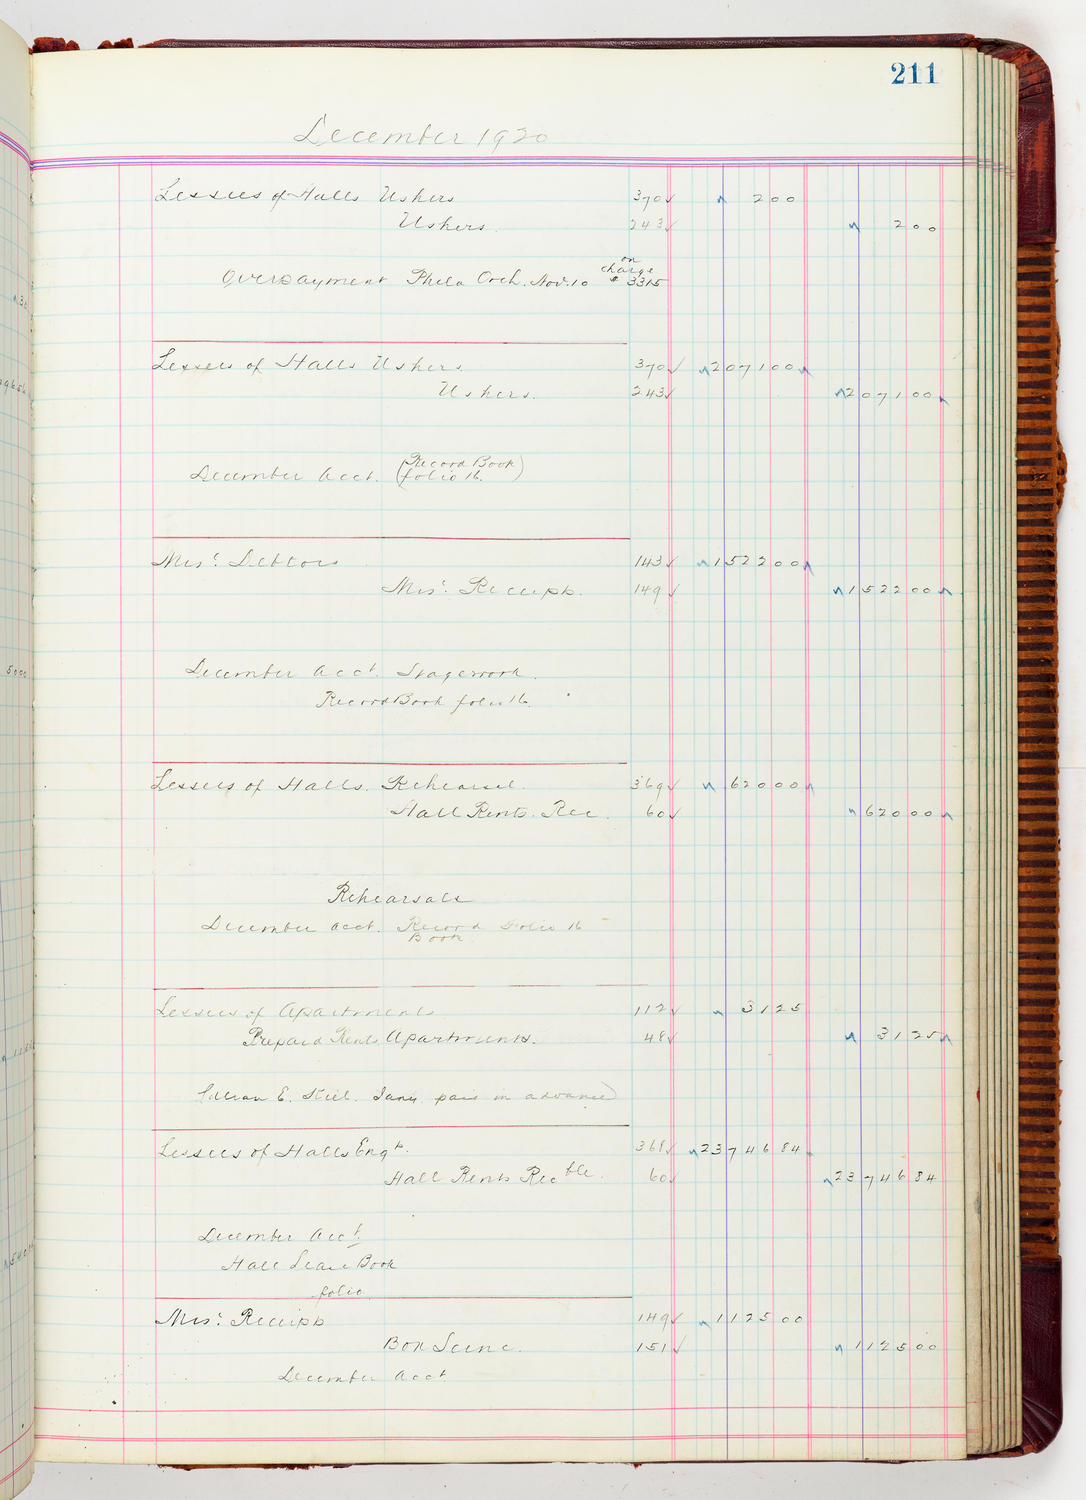 211
December 1920
Lessees of Halls Ushers 370 200
Ushers. 243 200
Overpayment Phila Orch. Nov. 10 on charge # 3315
Lessees of Halls Ushers 370 207100
Ushers. 243 207100
December acct. (Record Book folio 16.)
Mis: Debtors 143 152200
Mis: Receipts. 149 152200
December acct. Stagework.
Record Book folio 16.
Lessees of Halls. Rehearsal. 369 62000
Hall Rents. Rec. 60 62000
Rehearsals
December acct. Record Book Folio 16
Lessees of Apartments 112 3125
Prepaid Rents Apartments. 48 3125
E. Jany paid in advance)
Lessees of Halls Engt. 368 2374684
Hall Rents Recble. 60 2374684
December Acct.
Hall Lease Book
folio
Mis: Receipts 149 112500
Box Scene. 151 112500
December acct
5000